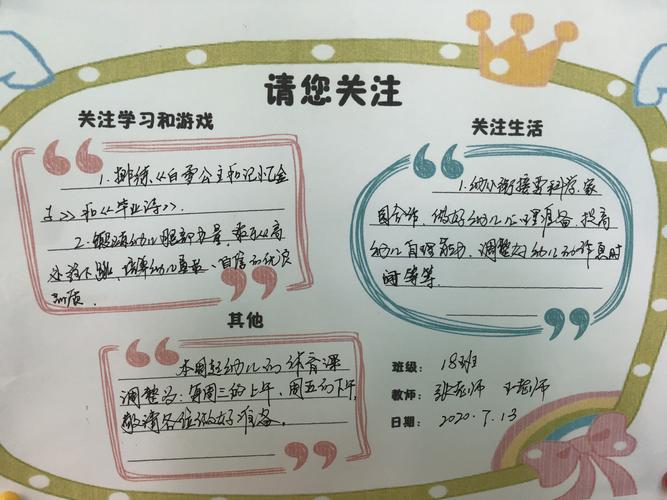 请您关注
关注学习和游戏
1. 排练《白雪公主和记忆金
》和《毕业诗》.
2. 锻炼幼儿腿部力量，敢于从高
处跳下，培养幼儿勇敢、自信的优良
品质.
关注生活
1. 幼小衔接要科学，家
园合作，做好幼儿心理准备，提高
幼儿自理能力，调整好幼儿的作息时
间等等.
其他
本周起幼儿的体育课
调整为：每周三的上午、周五的下午，
敬请各位做好准备.
班级： 18班
教师： 张老师 王老师
日期： 2020.7.13